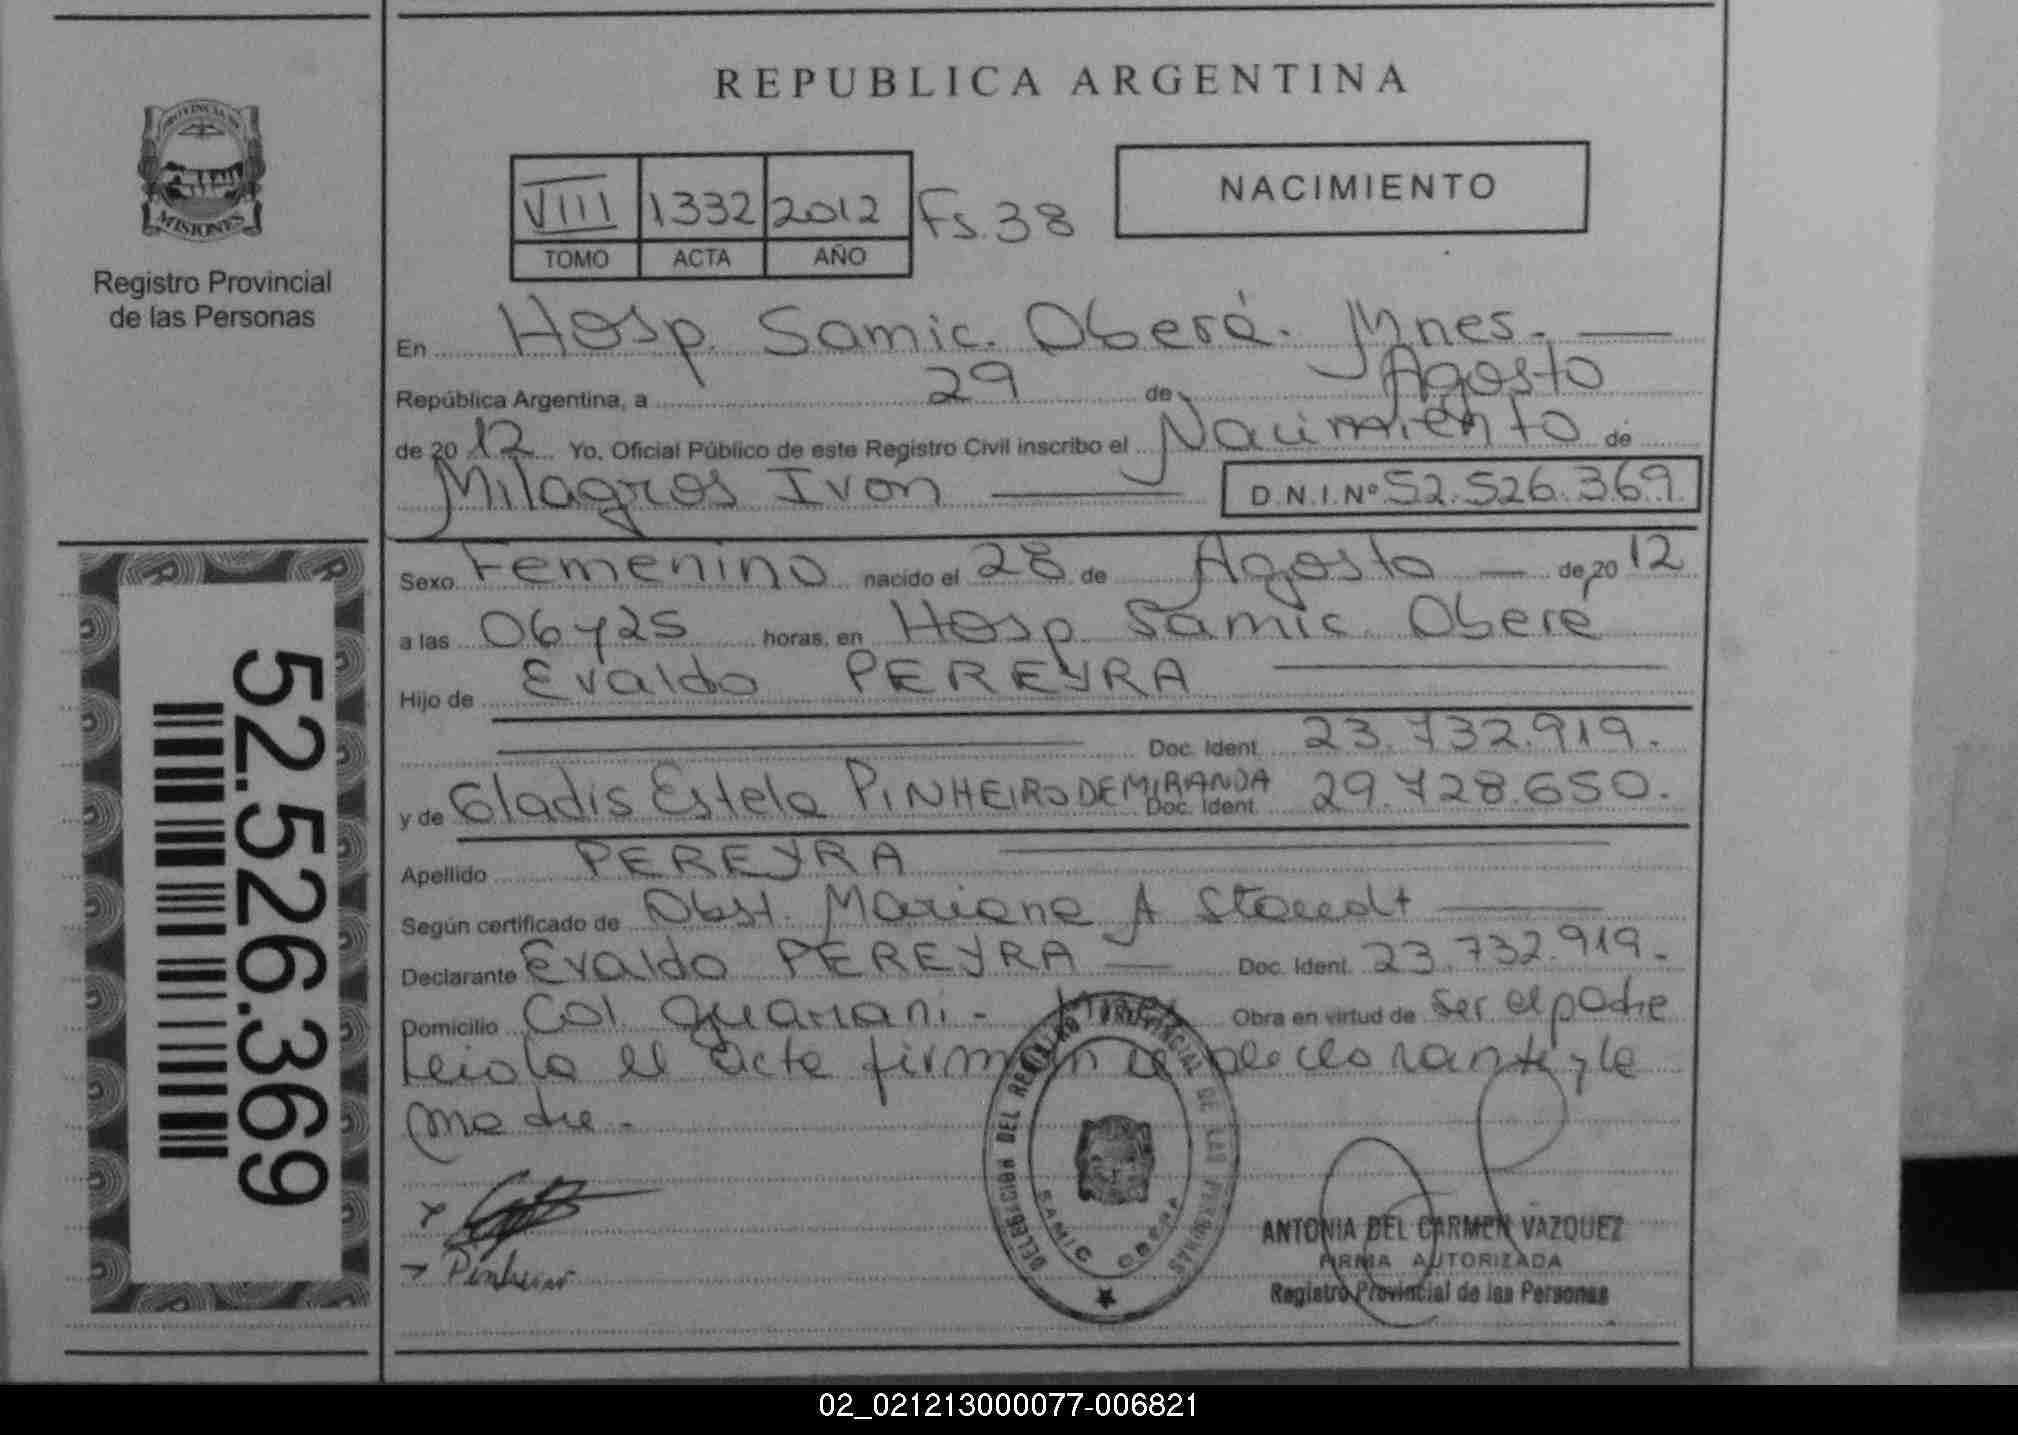 REPUBLICA ARGENTINA
PROVINCIA DE
MISIONES
Registro Provincial
de las Personas
VIII 1332 2012 Fs. 38
TOMO ACTA AÑO
NACIMIENTO
En Hosp. Samic. Oberá. Mnes.
República Argentina, a 29 de Agosto
de 2012 Yo, Oficial Público de este Registro Civil inscribo el Nacimiento de
Milagros Ivon D.N.I.Nº 52.526.369
Sexo Femenino nacido el 28 de Agosto de 2012
a las 06 y 25 horas, en Hosp Samic. Obera
Hijo de Evaldo PEREYRA
Doc. Ident. 23.732.919.
y de Gladis Estela PINHEIRO DE MIRANDA Doc. Ident. 29.728.650.
Apellido PEREYRA
Según certificado de Obst. Mariana A
Declarante Evaldo PEREYRA Doc. Ident. 23.732.919.
Domicilio Col guarani. Obra en virtud de ser el padre
Leida el acta firman el declarante y la
madre.
Pinheiro
52.526.369
DELEGACION DEL REGISTRO PROVINCIAL DE LAS PERSONAS
SAMIC OBERA
ANTONIA DEL CARMEN VAZQUEZ
FIRMA AUTORIZADA
Registro Provincial de las Personas
02_021213000077-006821